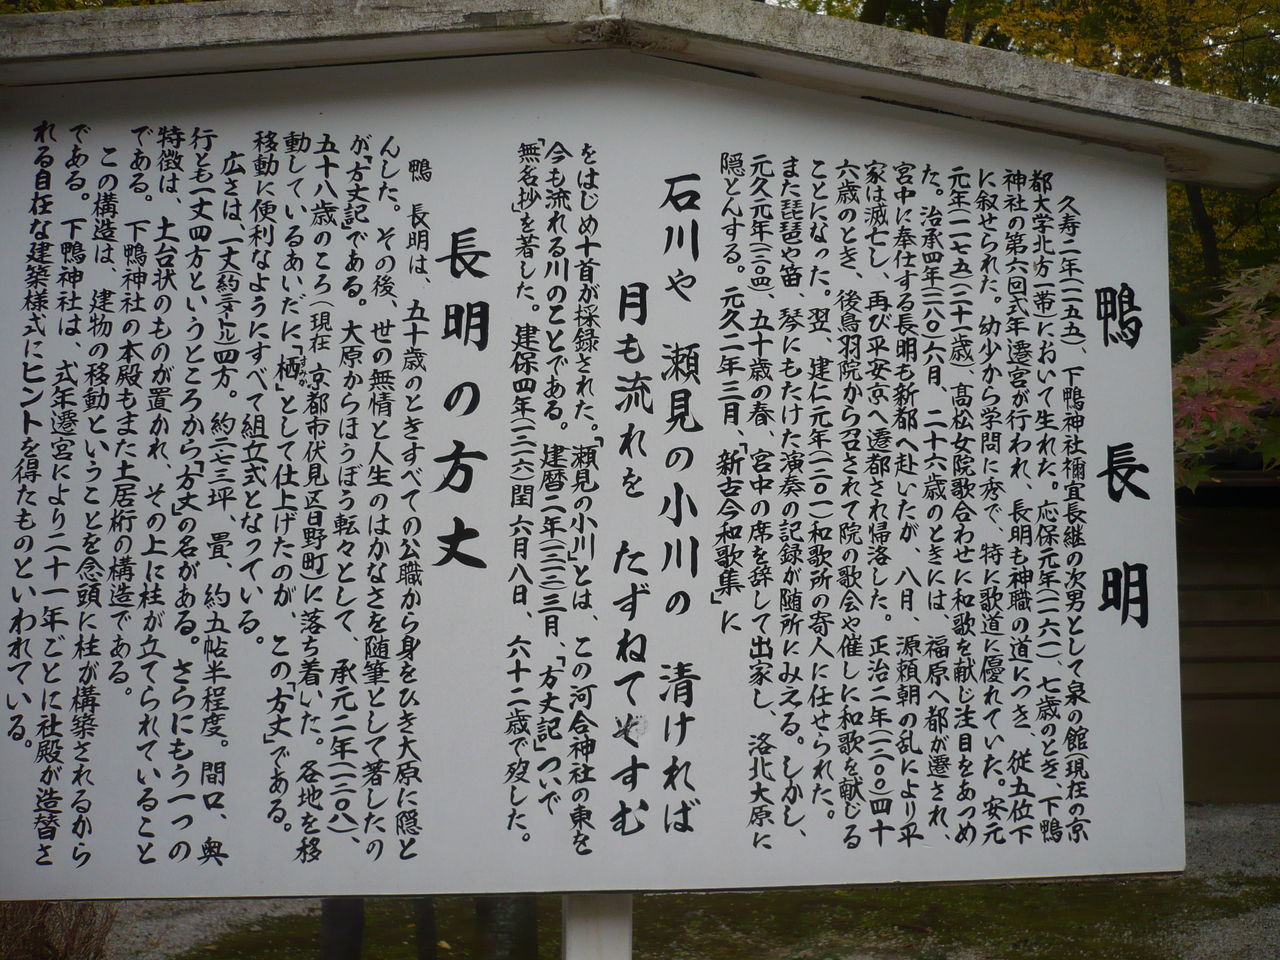 鴨 長 明
久寿二年(一一五五)、下鴨神社禰宜長継の次男として泉の館現在の京
都大学北方一帯)において生れた。応保元年(一一六一)、七歳のとき、下鴨
神社の第六回式年遷宮が行われ、長明も神職の道につき、従五位下
に叙せられた。幼少から学問に秀で、特に歌道に優れていた。安元
元年(一一七五)(二十一歳)、髙松女院歌合わせに和歌を献じ注目をあつめ
た。治承四年(一一八〇)六月、二十六歳のときには、福原へ都が遷され、
宮中に奉仕する長明も新都へ赴いたが、八月、源頼朝の乱により平
家は滅亡し、再び平安京へ遷都され帰洛した。正治二年(一二〇〇)四十
六歳のとき、後鳥羽院から召されて院の歌会や催しに和歌を献じる
ことになった。翌、建仁元年(一二〇一)和歌所の寄人に任せられた。
また琵琶や笛、琴にもたけた演奏の記録が随所にみえる。しかし、
元久元年(一二〇四)、五十歳の春、宮中の席を辞して出家し、洛北大原に
隠とんする。元久二年三月、「新古今和歌集」に
石川や 瀬見の小川の 清ければ
月も流れを たずねてぞすむ
をはじめ十首が採録された。「瀬見の小川」とは、この河合神社の東を
今も流れる川のことである。建暦二年(一二一二)三月、「方丈記」ついで
「無名抄」を著した。建保四年(一二一六)閏 六月八日、六十二歳で歿した。
長 明 の 方 丈
鴨 長明は、五十歳のときすべての公職から身をひき大原に隠と
んした。その後、世の無情と人生のはかなさを随筆として著したの
が「方丈記」である。大原からほうぼう転々として、承元二年(一二〇八)、
五十八歳のころ(現在 京都市伏見区日野町)に落ち着いた。各地を移
動しているあいだに、「栖」として仕上げたのが、この「方丈」である。
移動に便利なようにすべて組立式となっている。
広さは、一丈(約三メートル)四方。約二・七三坪、畳、約五帖半程度。間口、奥
行とも一丈四方というところから「方丈」の名がある。さらにもう一つの
特徴は、土台状のものが置かれ、その上に柱が立てられていること
である。下鴨神社の本殿もまた土居桁の構造である。
この構造は、建物の移動ということを念頭に柱が構築されるから
である。下鴨神社は、式年遷宮により二十一年ごとに社殿が造替さ
れる自在な建築様式にヒントを得たものといわれている。